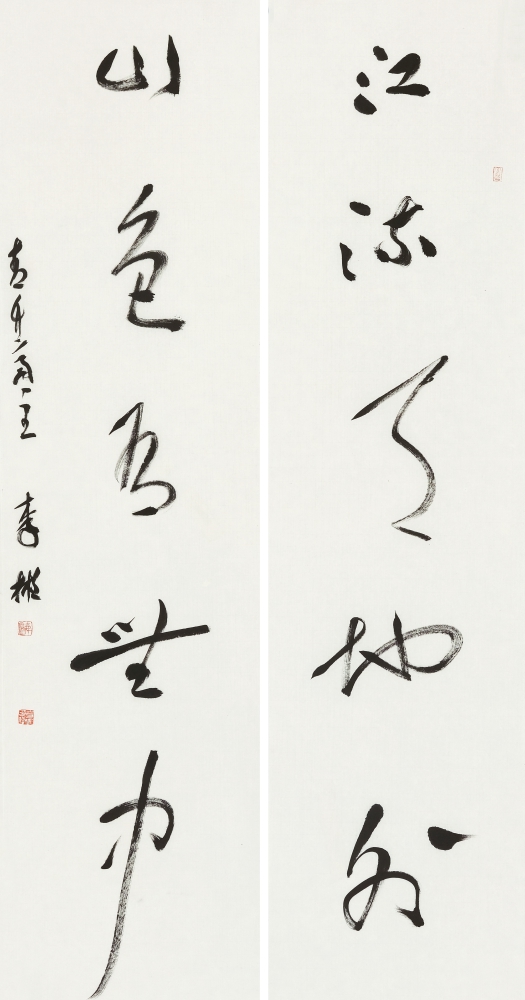 江流天地外
山色有無中
李